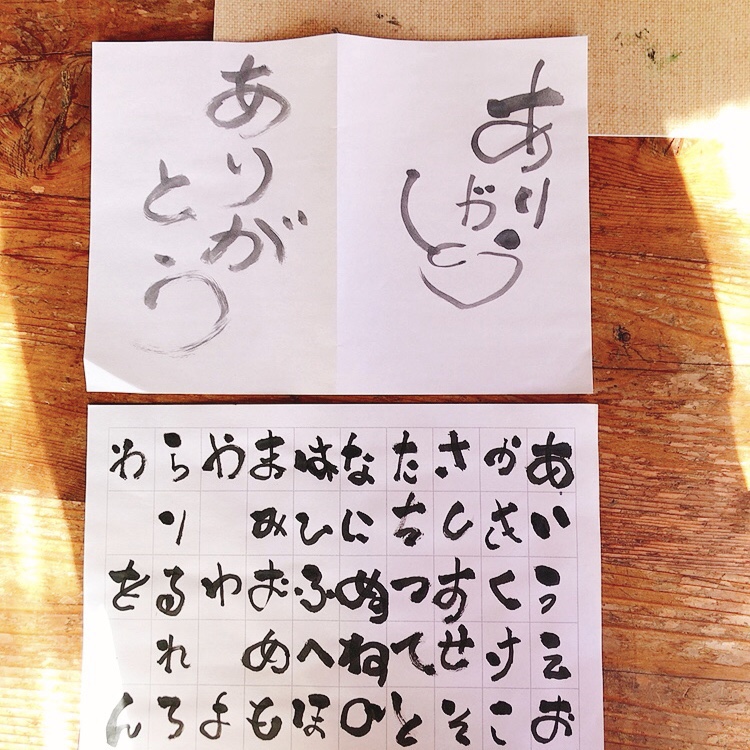 ありがとう
ありが
とう
あいうえお
かきくけこ
さしすせそ
たちつてと
なにぬねの
はひふへほ
まみむめも
やゆよ
らりるれろ
わをん